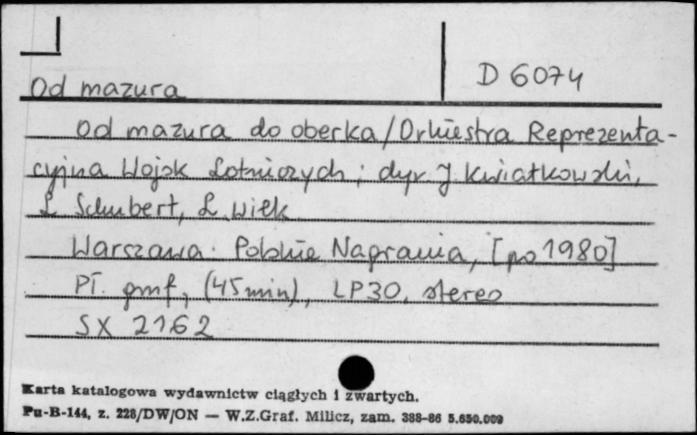 D 6074
Od mazura
Od mazura do oberka / Orkiestra Reprezenta-
cyjna Wojsk Lotniczych ; dyr. J. Kwiatkowski,
L. Schubert, L. Wilk
Warszawa : Polskie Nagrania, [po 1980]
Pł. gmf, (45 min), LP30, stereo
SX 2162
Karta katalogowa wydawnictw ciągłych i zwartych.
Pu-B-144, z. 228/DW/ON — W.Z.Graf. Milicz, zam. 388-86 5.650.000